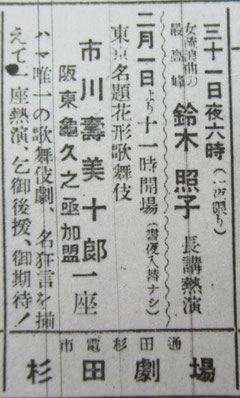 三十一日夜六時（一夜限り）
女流浪曲の最高峰 鈴木照子 長講熱演
二月一日より十一時開場（晝夜入替ナシ）
東京名題花形歌舞伎
市川壽美十郎一座
阪東龜久之亟加盟
ハマ唯一の歌舞伎劇、名狂言を揃
えて一座熱演、乞御後援、御期待！
市電杉田通
杉田劇場